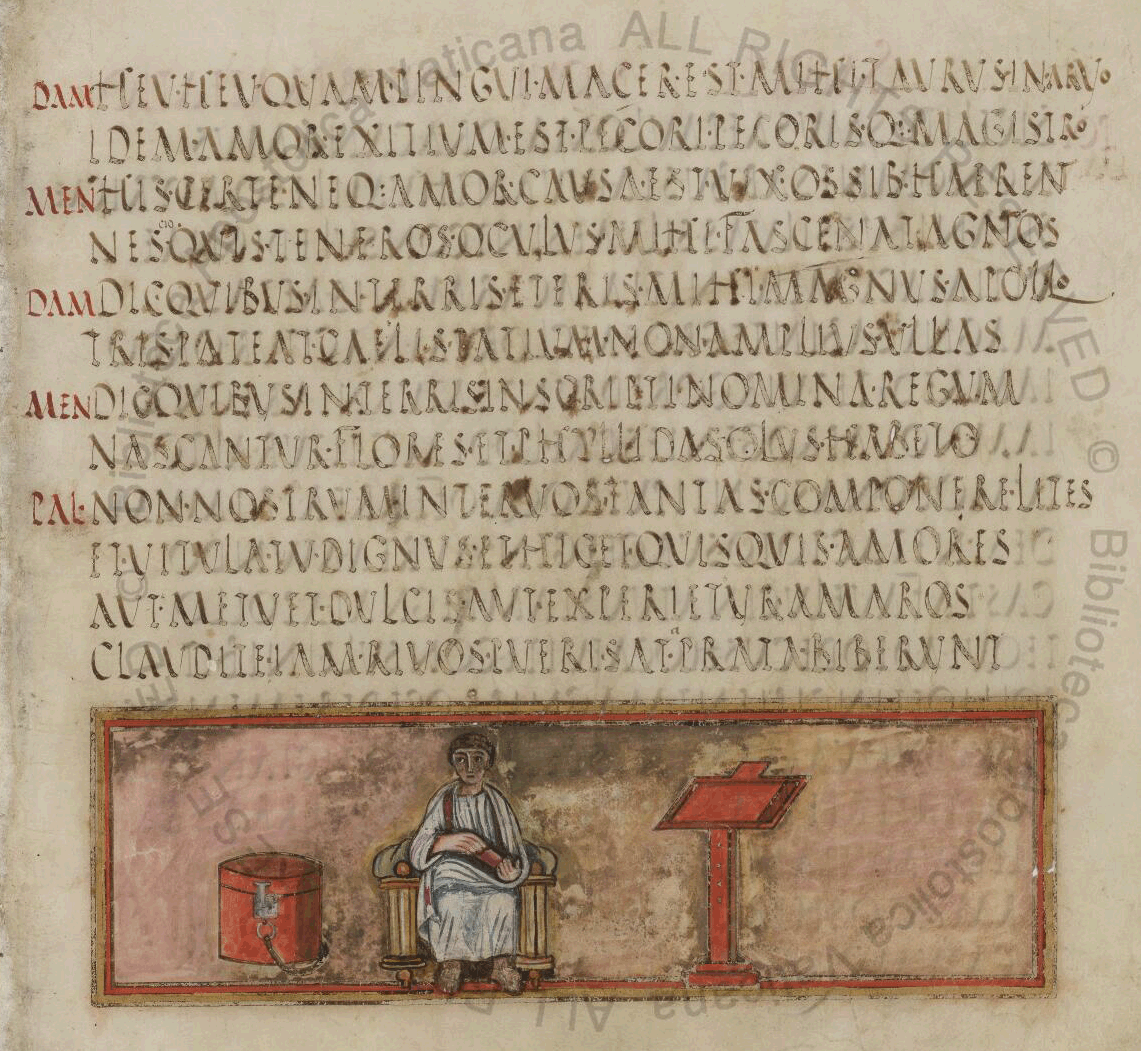 DAM HEV·HEV·QVAM·PINGVI·MACER·EST·MIHI·TAVRVS·IN·ARVO
IDEM·AMOR·EXITIVM·EST·PECORI·PECORISQ:MAGISTRO
MEN HIS·CERTE·NEQ:AMOR·CAVSA·EST·VIX·OSSIB·HAERENT
NEScioQVIS·TENEROS·OCVLVS·MIHI·FASCENAT·AGNOS
DAM DIC·QVIBVS·IN·TERRIS·ET·ERIS·MIHI·MAGNVS·APOLLO
TRIS·PATEAT·CAELI·SPATIVM·NON·AMPLIVS·VLLAS
MEN DIC·QVIBVS·IN·TERRIS·INSCRIPTI·NOMINA·REGVM
NASCANTVR·FLORES·ET·PHYLLIDA·SOLVS·HABETO
PAL·NON·NOSTRVM·INTER·VOS·TANTAS·COMPONERE·LITES
ET·VITVLA·TV·DIGNVS·ET·HIC·ET·QVISQVIS·AMORES
AVT·METVET·DVLCIS·AVT·EXPERIETVR·AMAROS
CLAVDITE·IAM·RIVOS·PVERI·SAT·PRATA·BIBERVNT
ALL RIGHTS RESERVED © Biblioteca Apostolica Vaticana